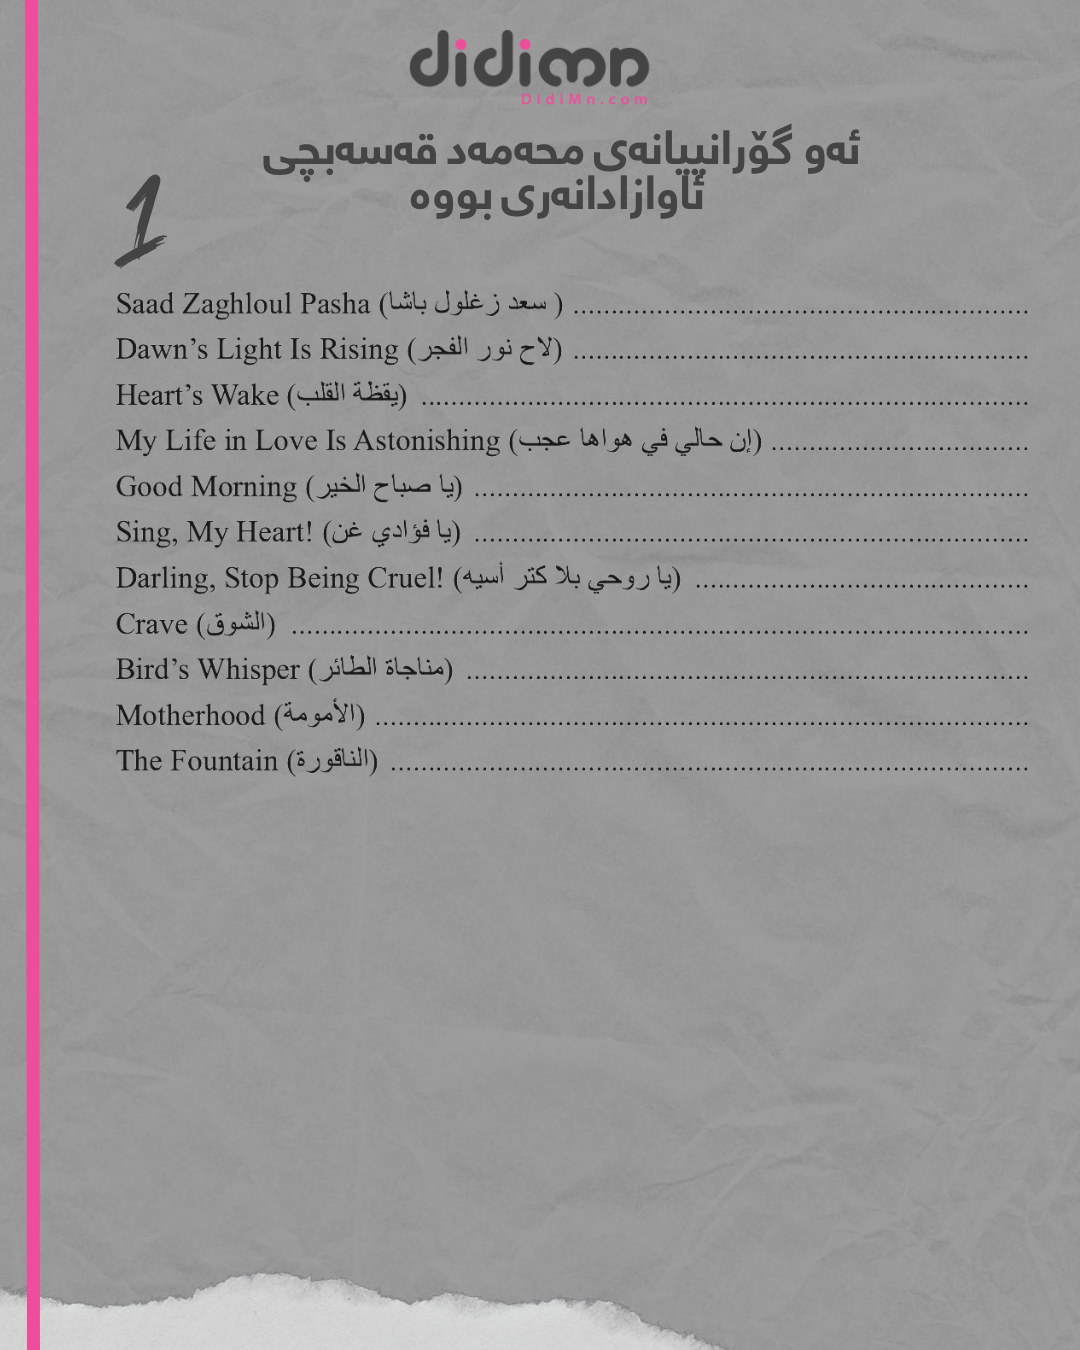 didimn
DidiMn.com
ئەو گۆرانییانەی محەمەد قەسەبچی
ئاوازادانەری بووە
1
Saad Zaghloul Pasha (سعد زغلول باشا ) ............................................................
Dawn’s Light Is Rising (لاح نور الفجر) ............................................................
Heart’s Wake (يقظة القلب) ................................................................................
My Life in Love Is Astonishing (إن حالي في هواها عجب) ..................................
Good Morning (يا صباح الخير) .........................................................................
Sing, My Heart! (يا فؤادي غن) .........................................................................
Darling, Stop Being Cruel! (يا روحي بلا كتر أسيه) ............................................
Crave (الشوق) .................................................................................................
Bird’s Whisper (مناجاة الطائر) ..........................................................................
Motherhood (الأمومة) ......................................................................................
The Fountain (الناقورة) ....................................................................................